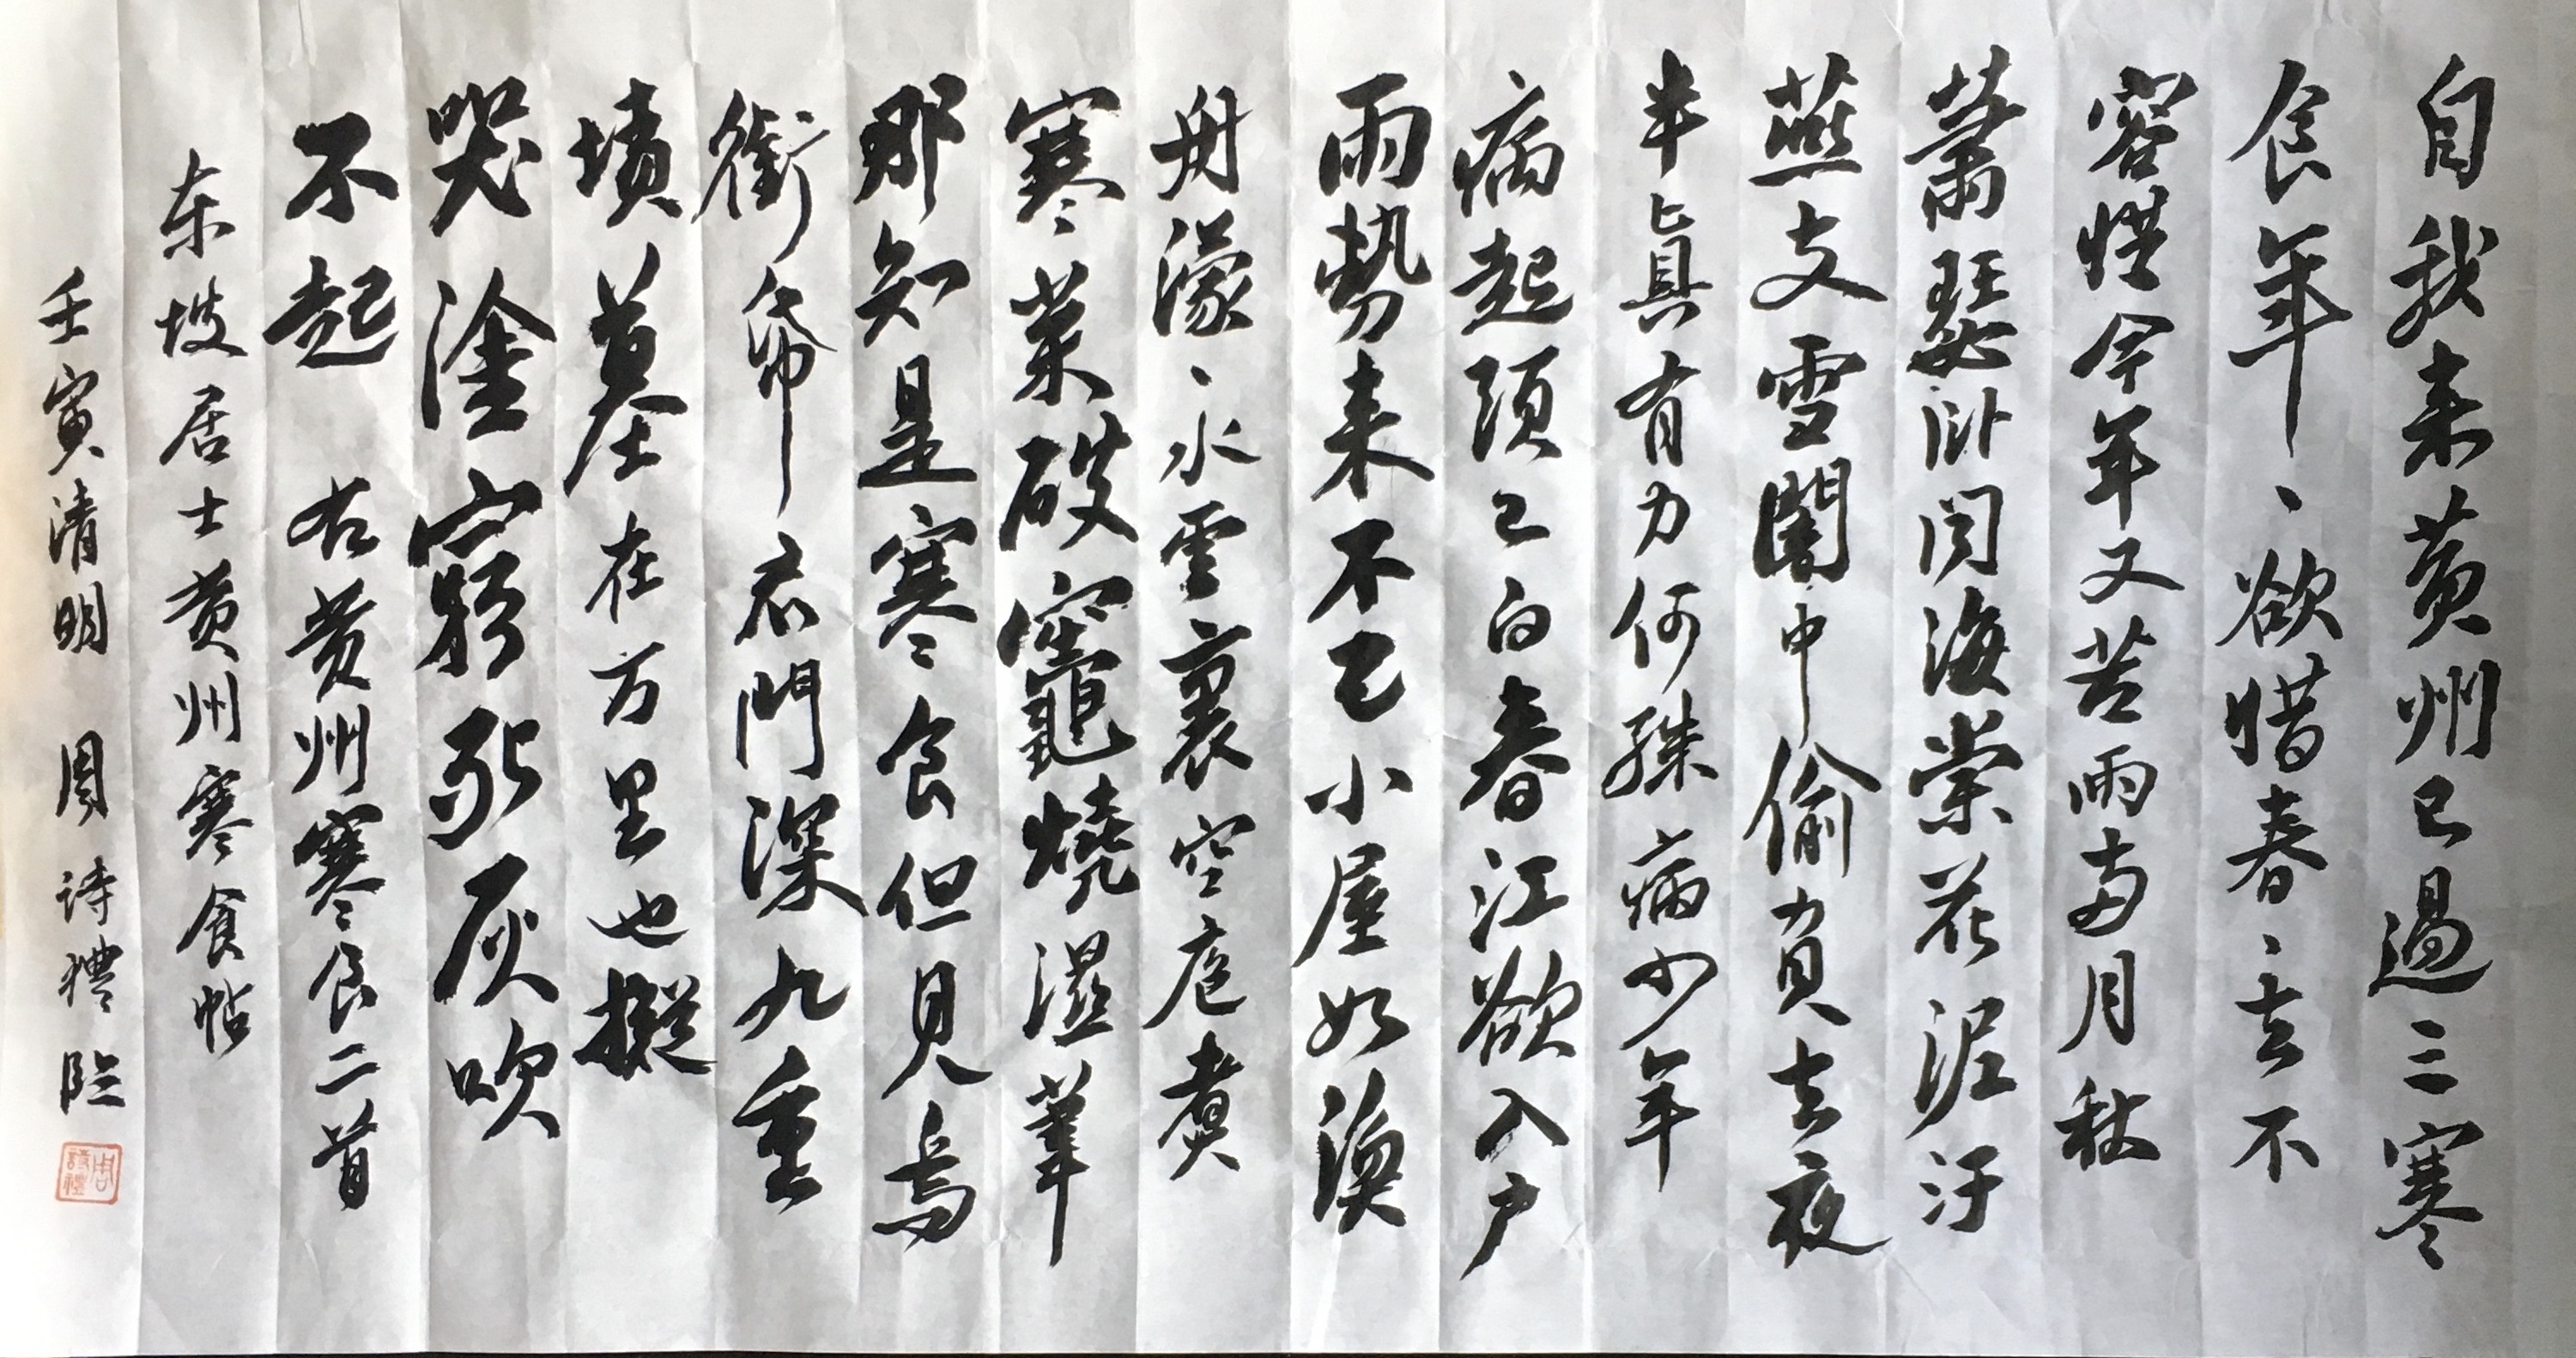 自我来黄州已過三寒
食年、欲惜春、去不
容惜今年又苦雨兩月秋
蕭瑟卧聞海棠花泥汙
燕支雪闇中偷負去夜
半真有力何殊病少年
病起頭已白春江欲入户
雨勢来不已小屋如漁
舟濛、水雲裏空庖煮
寒菜破竈燒濕葦
那知是寒食但見烏
銜帋君門深九重
墳墓在万里也擬
哭塗窮死灰吹
不起 右黄州寒食二首
东坡居士黄州寒食帖
壬寅清明 周诗禮臨
周詩禮